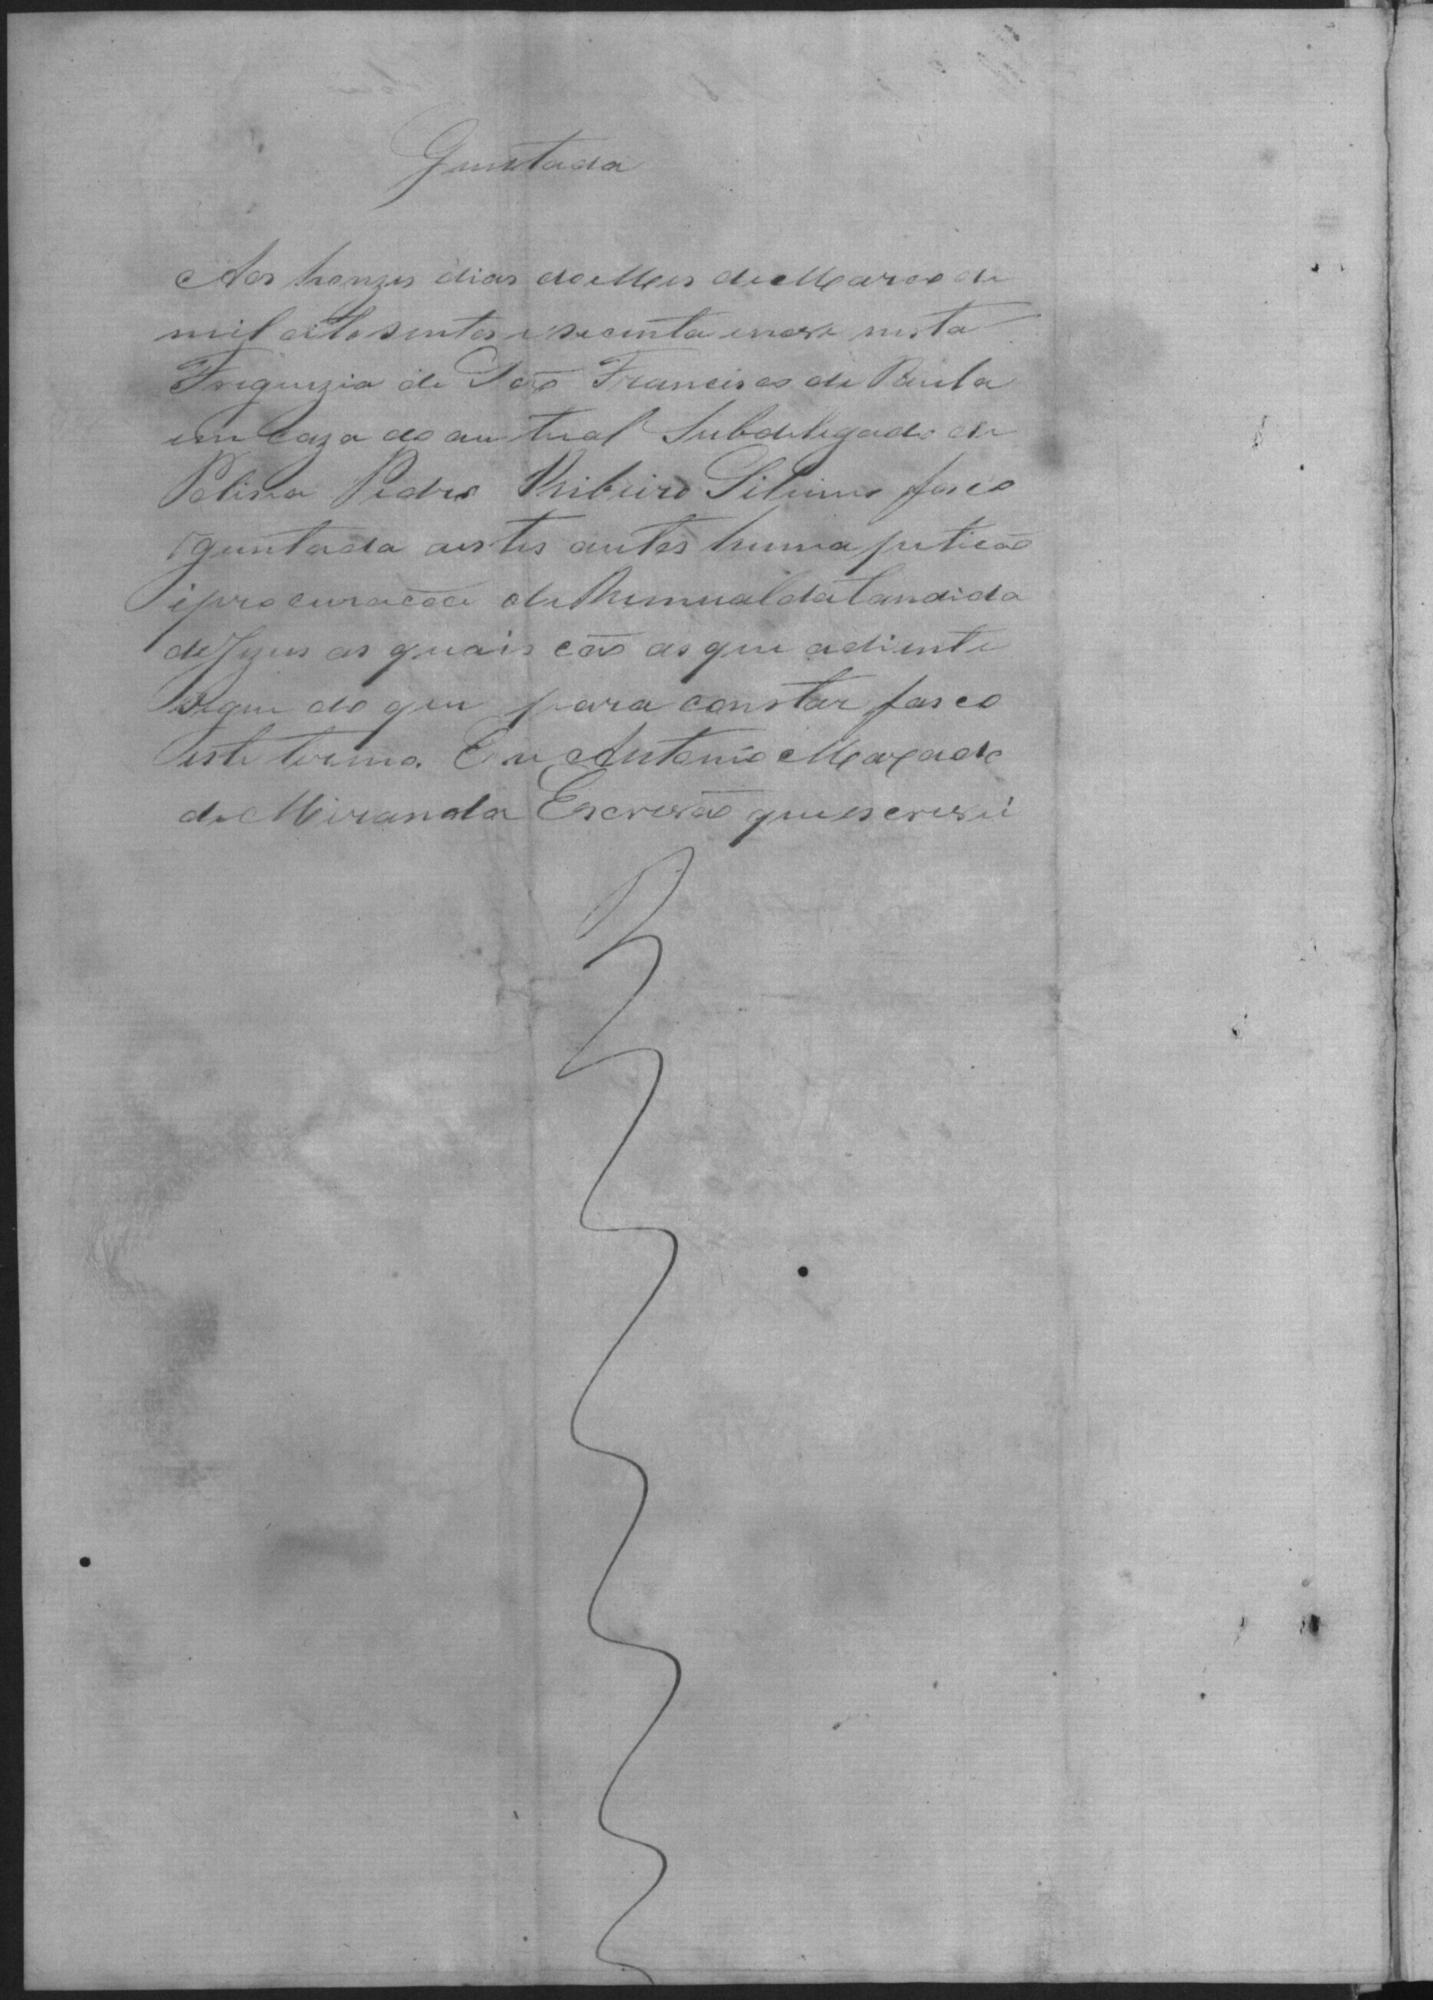 Guntada
Aos honzes dias do Mes de Março de
mil oito sentos e secenta e nove nesta
Freguizia de São Francisco de Paula
em Caza do autual Subdelegado de
Polisia Pedro Ribeiro faso
guntada aestes autos huma petição
i procuração de Rumualda Candida
de Jezus as quais cão as que adiente
segue do que para constar fasco
este termo. Eu Antonio Maxado
de Miranda Escrivão que escrevi